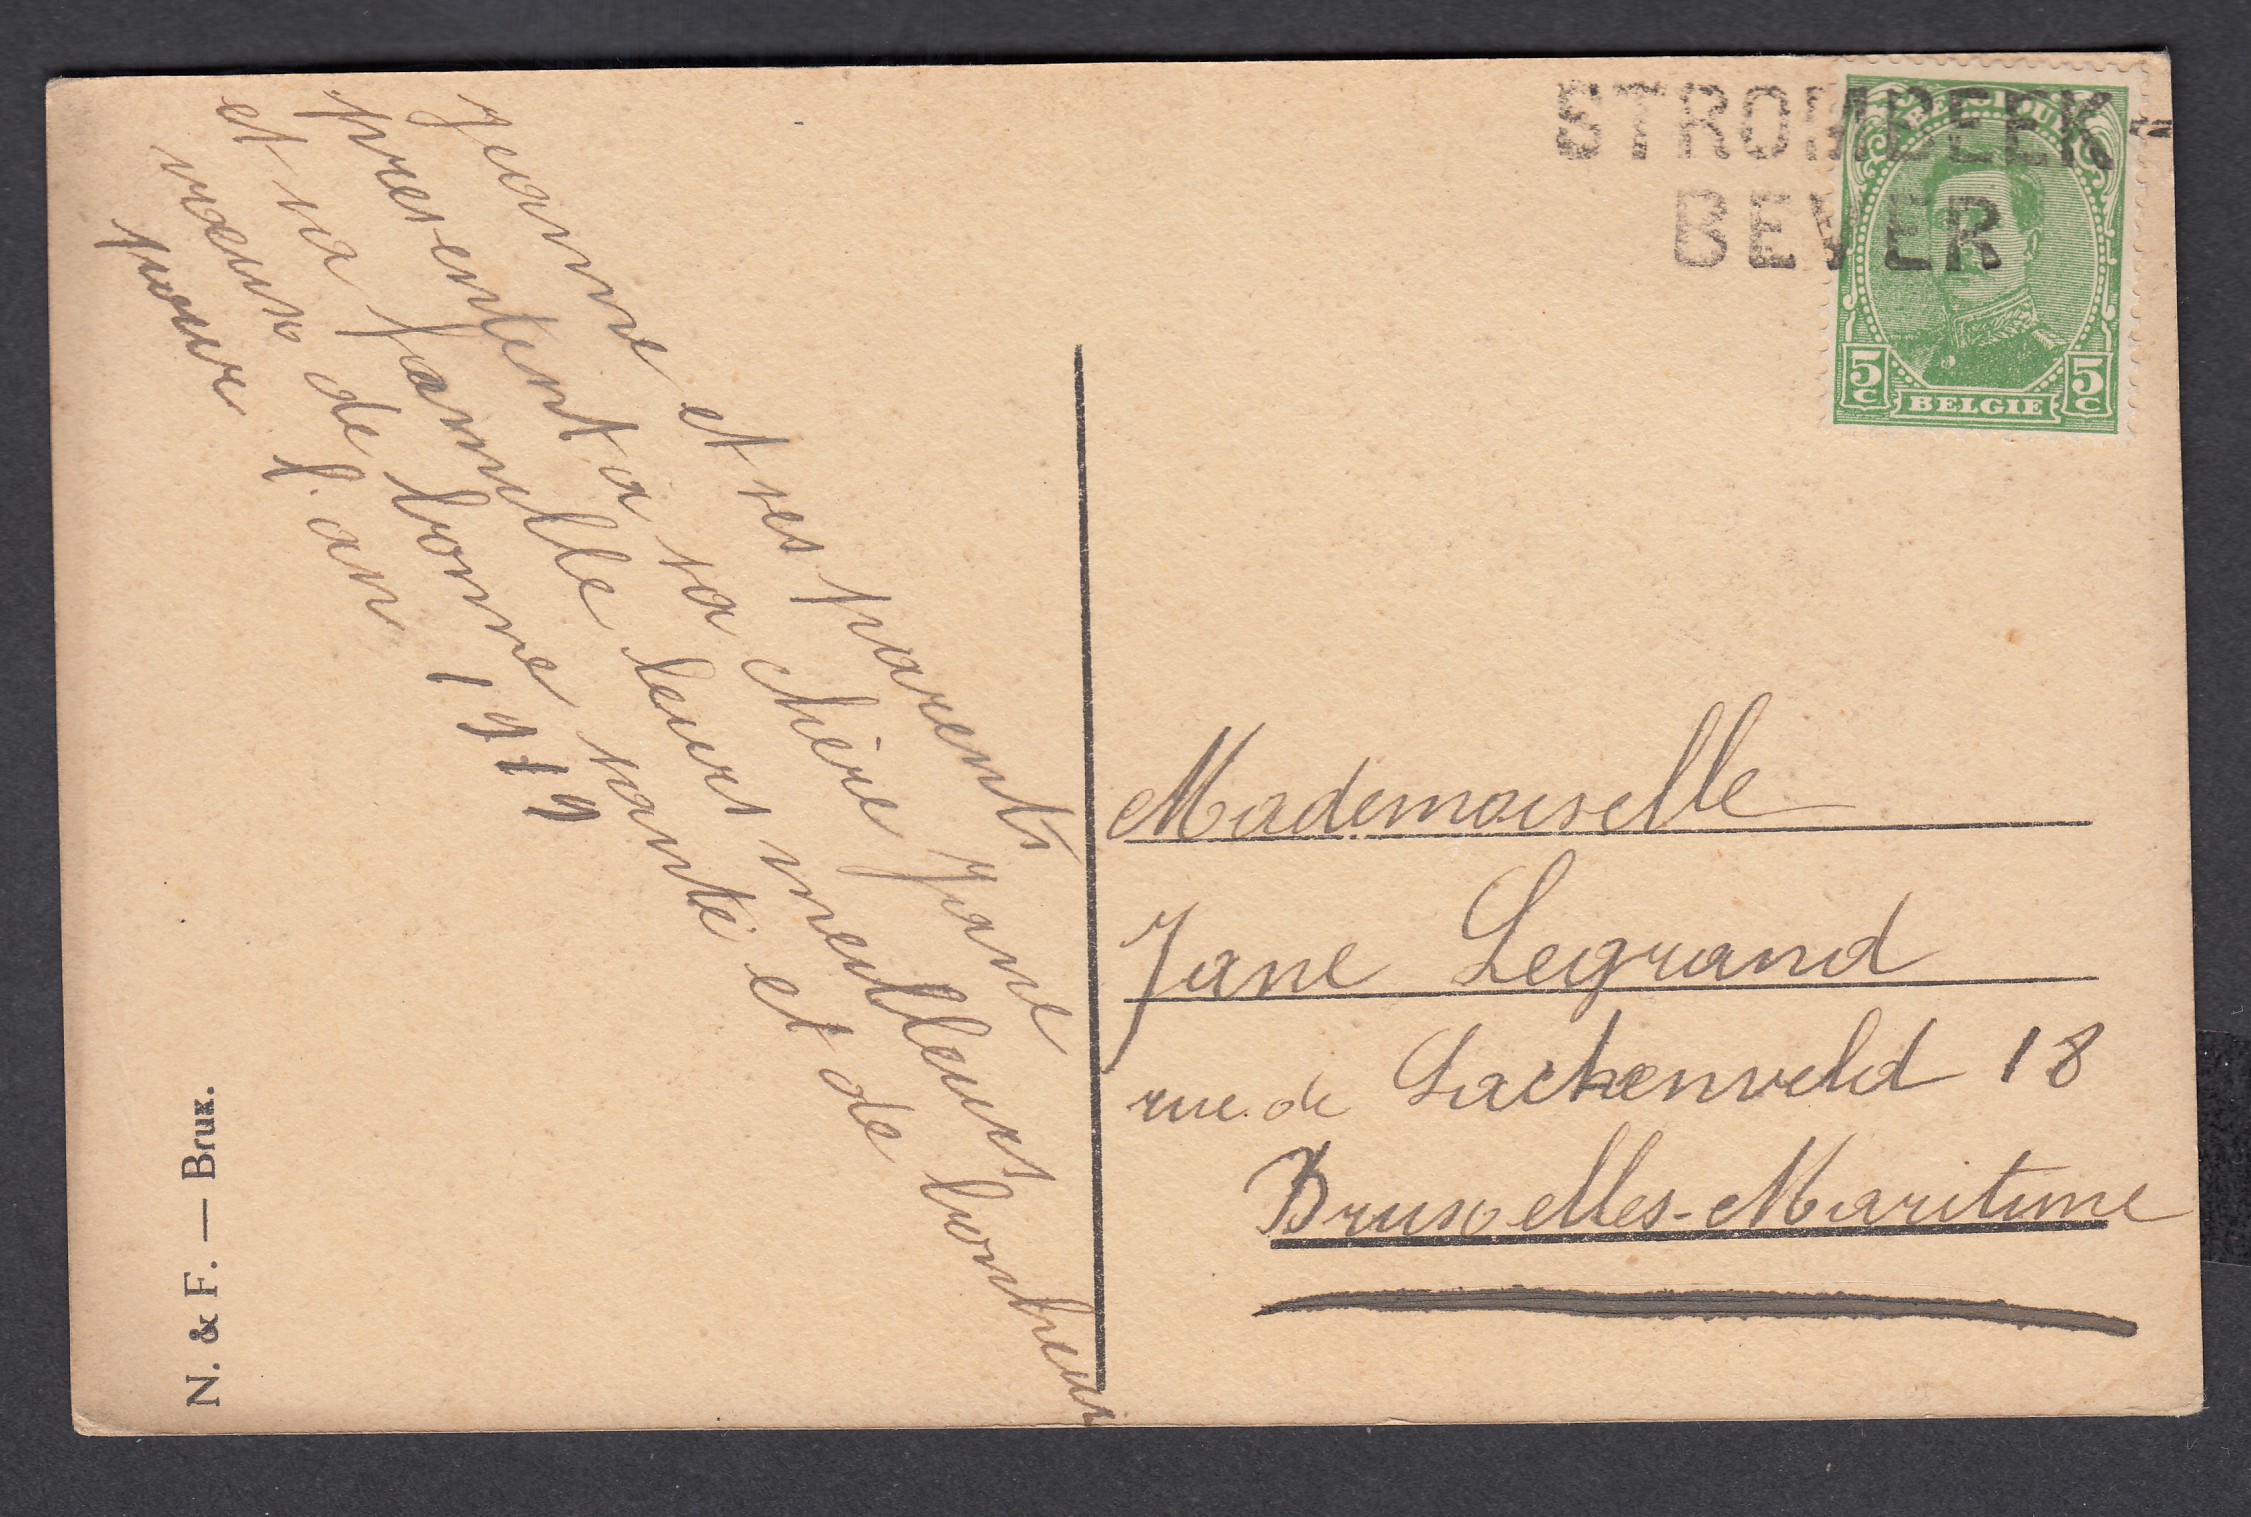 Jeanne et ses parents
présentent à sa chère Jane
et sa famille leurs meilleurs
vœux de bonne santé et de bonheur
pour l'an 1919
N. & F. — Brux.
STROMBEEK-
BEVER
BELGIQUE
5c BELGIE 5c
Mademoiselle
Jane Legrand
rue de Lackenveld 18
Bruxelles-Maritime